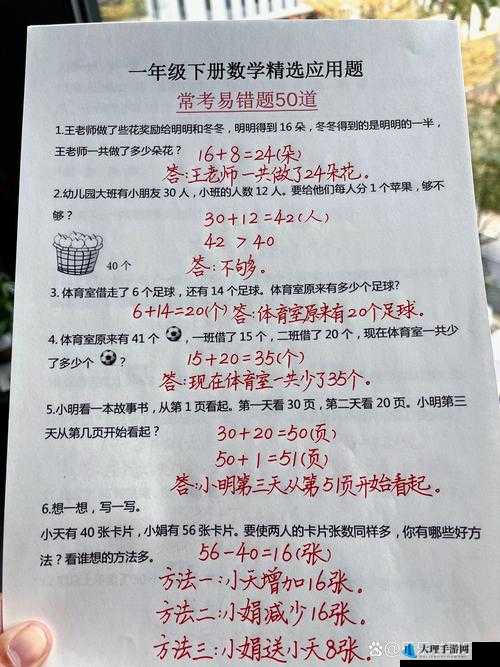 一年级下册数学精选应用题
常考易错题50道
1.王老师做了些花奖励给明明和冬冬，明明得到16朵，冬冬得到的是明明的一半，
王老师一共做了多少朵花？ 16+8=24(朵)
答:王老师一共做了24朵花。
2.幼儿园大班有小朋友30人，小班的人数12人。要给他们每人分1个苹果，够不
够？ 30+12=42(人)
42 > 40
40个 答:不够。
3. 体育室借走了6个足球，还有14个足球。体育室原来有多少个足球?
6+14=20(个) 答:体育室原来有20个足球。
4. 体育室原来有41个 ，一班借了15个，二班借了20个，现在体育室一共少
了多少个 ？ 15+20=35(个)
答:现在体育室一共少了35个。
5.小明看一本故事书，从第1页看起。第一天看30页，第二天看20页。小明第三
天从第几页开始看起？ 30+20=50(页)
50+1=51(页)
答:小明第三天从第51页开始看起。
6.想一想，写一写。
小天有40张卡片，小娟有56张卡片。要使两人的卡片张数同样多，你有哪些好方
法？看谁想的方法多。 56-40=16(张)
方法一:小天增加16张。
方法二:小娟减少16张。
方法三:小娟送小天8张。
大理手游网